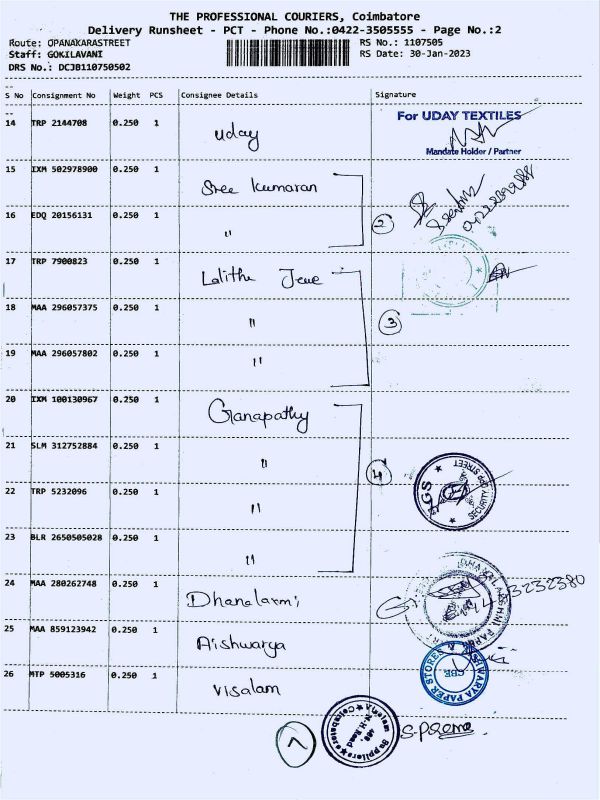 THE PROFESSIONAL COURIERS, Coimbatore
Delivery Runsheet - PCT - Phone No.:0422-3505555 - Page No.:2
Route: OPANAKARASTREET RS No.: 1107505
Staff: GOKILAVANI RS Date: 30-Jan-2023
DRS No.: DCJB110750502
S No Consignment No Weight PCS Consignee Details Signature
14 TRP 2144708 0.250 1 Uday
For UDAY TEXTILES
Mandate Holder / Partner
15 IXM 502978900 0.250 1 Sree Kumaran
16 EDQ 20156131 0.250 1 "
2
17 TRP 7900823 0.250 1 Lalitha
18 MAA 296057375 0.250 1 "
3
19 MAA 296057802 0.250 1 "
20 IXM 100130967 0.250 1 Ganapathy
21 SLM 312752884 0.250 1 "
4
SGS
SECURITY
STREET
22 TRP 5232096 0.250 1 "
23 BLR 2650505028 0.250 1 "
24 MAA 280262748 0.250 1 Dhanalaxmi
25 MAA 859123942 0.250 1 Aishwarya
PAPER STORES
CBE
26 MTP 5005316 0.250 1 Visalam
Visalam
Coimbatore